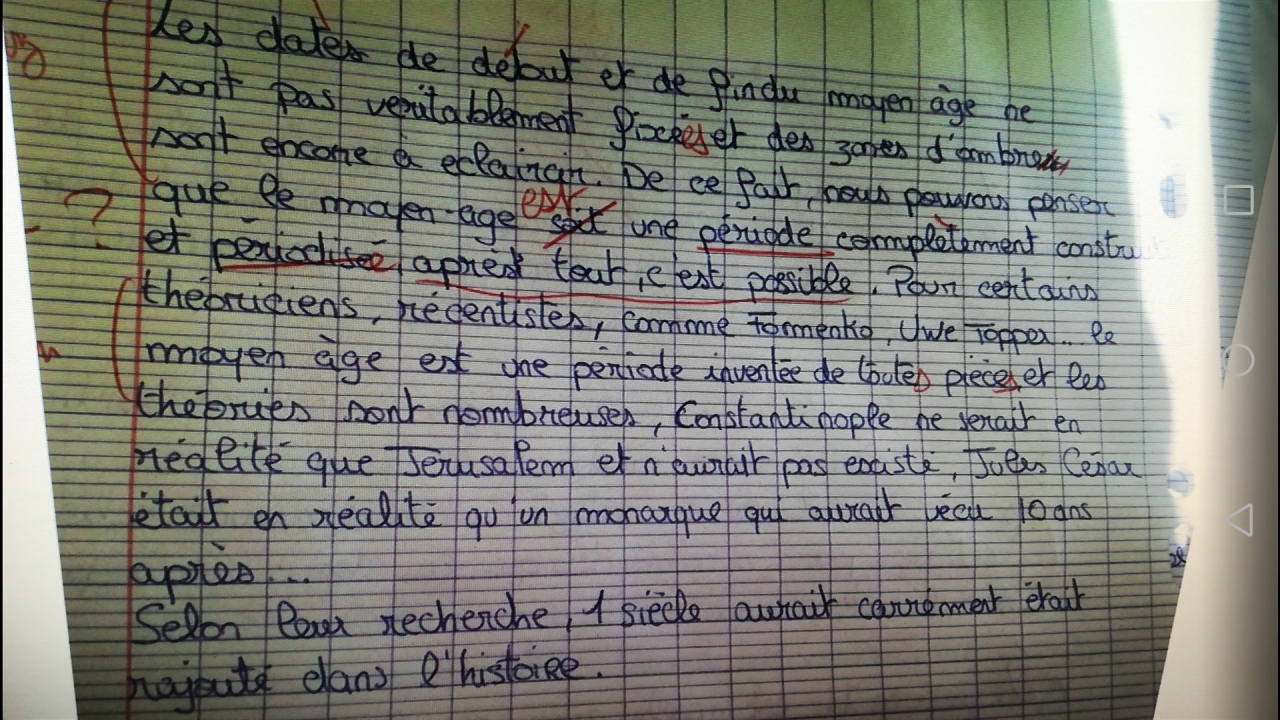 Les dates de début et de fin du moyen âge ne
sont pas veritablement fixées et des zones d'ombre
sont encore à eclaircir. De ce fait, nous pouvons penser
que le moyen-age soit est une période complètement constru
? et périodisée, après tout, c'est possible. Pour certains
théoriciens, récentistes, comme Formenko, Uwe Topper.. le
moyen âge est une période inventée de toutes pièces, et les
théories sont nombreuses, Constantinople ne serait en
réalité que Jérusalem et n'aurait pas existé, Jules César
était en réalité qu'un monarque qui aurait vécu 10 ans
après...
Selon leur recherche, 1 siècle aurait carrément était
rajouté dans l'histoire.